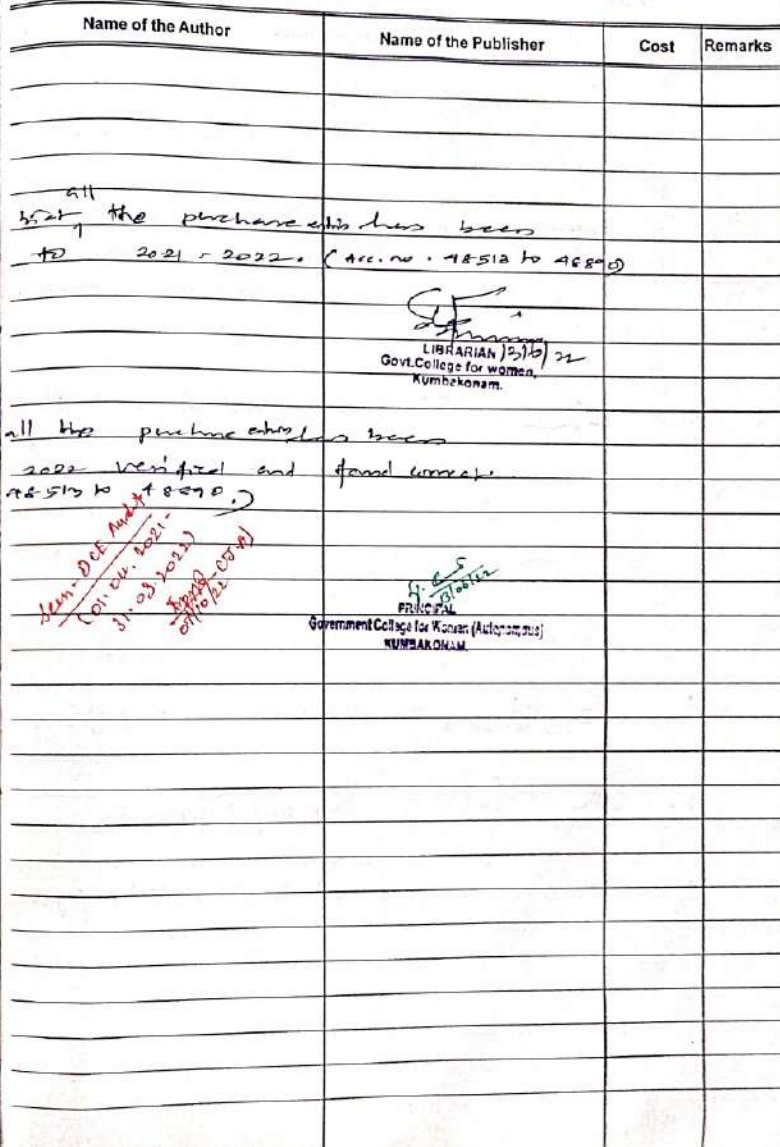 Name of the Author Name of the Publisher Cost Remarks
all
that the purchase entries has been
to 2021 - 2022. (Acc. no. 48513 to 48890)
LIBRARIAN 13/6/22
Govt.College for women,
Kumbakonam.
all the purchase entries has been
2022 verified and found correct.
48513 to 48890.)
Seen - DCE Audit
(01.04.2021 -
31.03.2022)
07/10/22
13/06/22
PRINCIPAL
Government College for Women (Autonomous)
KUMBAKONAM.